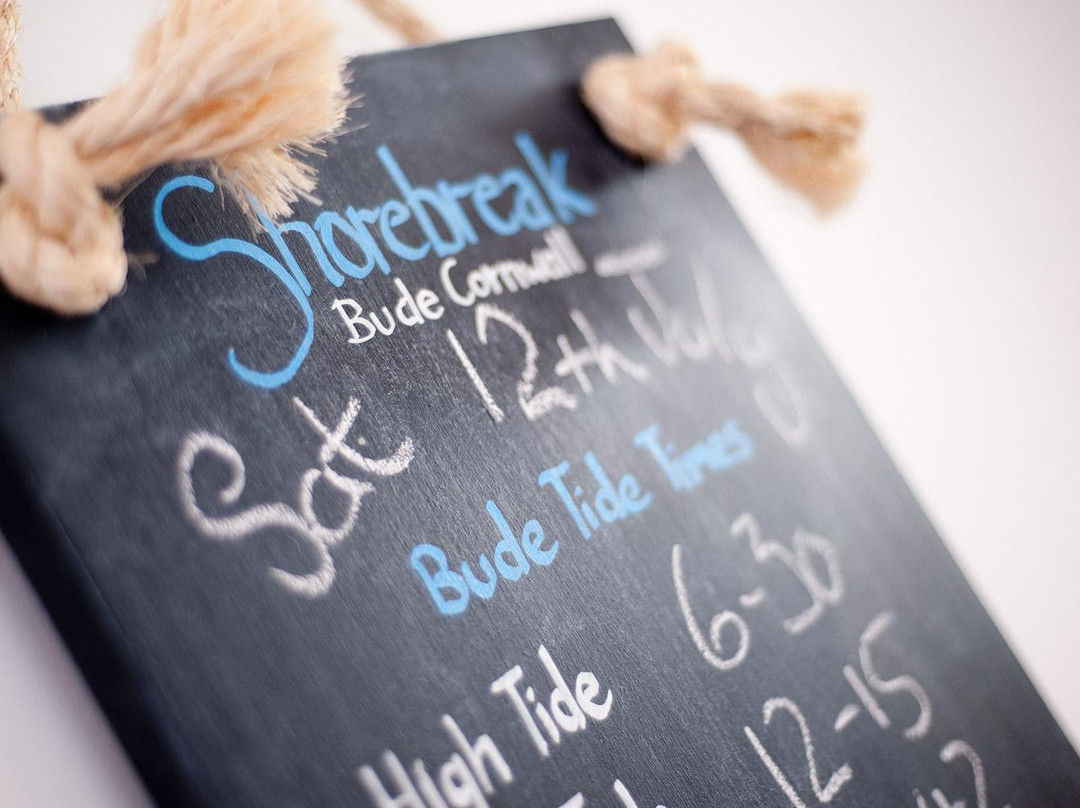 Shorebreak
Bude Cornwall
Sat. 12th July
Bude Tide Times
High Tide 6-30
Tide 12-15